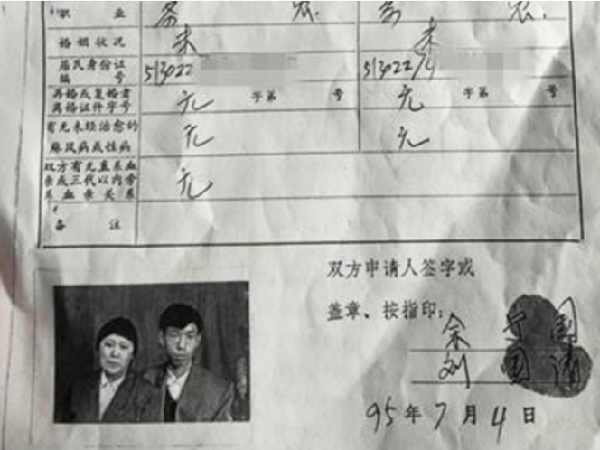 职业 务农. 务农.
婚姻状况 未 未
居民身份证 513022 513022
编号
再婚或复婚者 无 字第 号 无 字第 号
离婚证件字号
有无未经治愈的 无 无
麻风病或性病
双方有无直系血
亲或三代以内旁 无
系血亲关系
备注
双方申请人签字或
盖章、按指印:
余 国
刘国清
95年7月4日